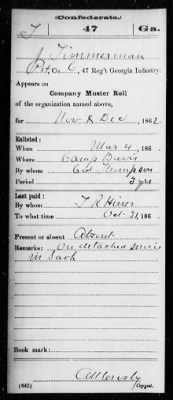 (Confederate.)
T 47 Ga.
J Timmerman
Pvt, Co. C, 47 Reg't Georgia Infantry.
Appears on
Company Muster Roll
of the organization named above,
for Nov & Dec, 1862.
Enlisted:
When Mar 4, 186 .
Where Camp Davis
By whom Col Thompson
Period 3 yrs
Last paid:
By whom T R Hines
To what time Oct 31, 186 .
Present or absent Absent
Remarks: On detached service
in Savh
Book mark:
(642) Copyist.